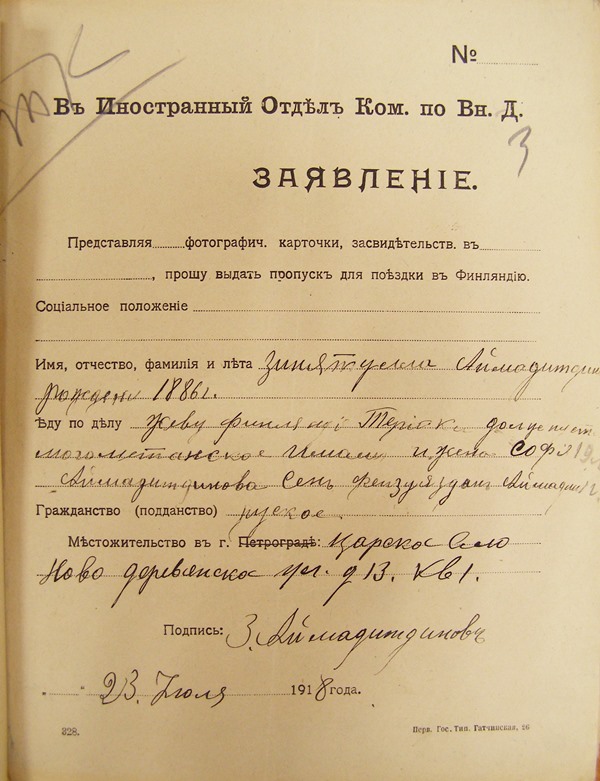 №
Въ Иностранный Отдѣлъ Ком. по Вн. Д.
3
ЗАЯВЛЕНІЕ.
Представляя фотографич. карточки, засвидѣтельств. въ
, прошу выдать пропускъ для поѣздки въ Финляндію.
Соціальное положеніе
Имя, отчество, фамилія и лѣта Зинятулла Аймадитдин
рожден 1886г.
Ѣду по дѣлу живу Терiоки
имам и жена София
Аймадитдинова
Гражданство (подданство) руское
Мѣстожительство въ г. Петроградѣ: Царско Село
Ново деревенска ул. д 13. кв 1.
Подпись: З. Аймадитдиновъ
" " 23. Июля 1918 года.
328. Перв. Гос. Тип. Гатчинская, 26